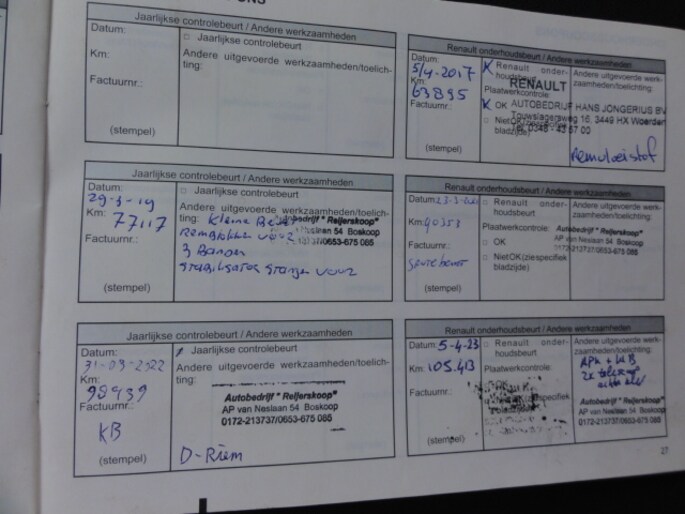 Jaarlijkse controlebeurt / Andere werkzaamheden
Datum:
□ Jaarlijkse controlebeurt
Km:
Andere uitgevoerde werkzaamheden/toelich-
ting:
Factuurnr.:
(stempel)
Renault onderhoudsbeurt / Andere werkzaamheden
Datum:
5/4-2017
Km:
63895
Factuurnr.:
(stempel)
K Renault onder-
houdsbeurt
Plaatwerkcontrole:
K OK
□ Niet OK (zie specifiek
bladzijde)
Andere uitgevoerde werk-
zaamheden/toelichting:
RENAULT
AUTOBEDRIJF HANS JONGERIUS BV
Touwslagersweg 16, 3449 HX Woerden
Tel. 0348 - 43 67 00
Remvloeistof
Jaarlijkse controlebeurt / Andere werkzaamheden
Datum:
29-3-19
Km: 77117
Factuurnr.:
(stempel)
□ Jaarlijkse controlebeurt
Andere uitgevoerde werkzaamheden/toelich-
ting: Kleine Beurt
Remblokken voor
3 Banden
Stabilisator Stangen voor
Autobedrijf " Reijerskoop"
Neslaan 54 Boskoop
/0653-675 085
Renault onderhoudsbeurt / Andere werkzaamheden
Datum: 23-3-
Km: 90353
Factuurnr.:
(stempel)
□ Renault onder-
houdsbeurt
Plaatwerkcontrole:
□ OK
□ Niet OK (zie specifiek
bladzijde)
Andere uitgevoerde werk-
zaamheden/toelichting:
Autobedrijf " Reijerskoop"
AP van Neslaan 54 Boskoop
0172-213737/0653-675 085
Jaarlijkse controlebeurt / Andere werkzaamheden
Datum:
31-03-2022
Km:
98939
Factuurnr.:
KB
(stempel)
Jaarlijkse controlebeurt
Andere uitgevoerde werkzaamheden/toelich-
ting:
Autobedrijf " Reijerskoop"
AP van Neslaan 54 Boskoop
0172-213737/0653-675 085
D-Riem
Renault onderhoudsbeurt / Andere werkzaamheden
Datum: 5-4-23
Km: 105.413
Factuurnr.:
(stempel)
□ Renault onder-
houdsbeurt
Plaatwerkcontrole:
Andere uitgevoerde werk-
zaamheden/toelichting:
APK + KB
2x
Autobedrijf " Reijerskoop"
AP van Neslaan 54 Boskoop
0172-213737/0653-675 085
27